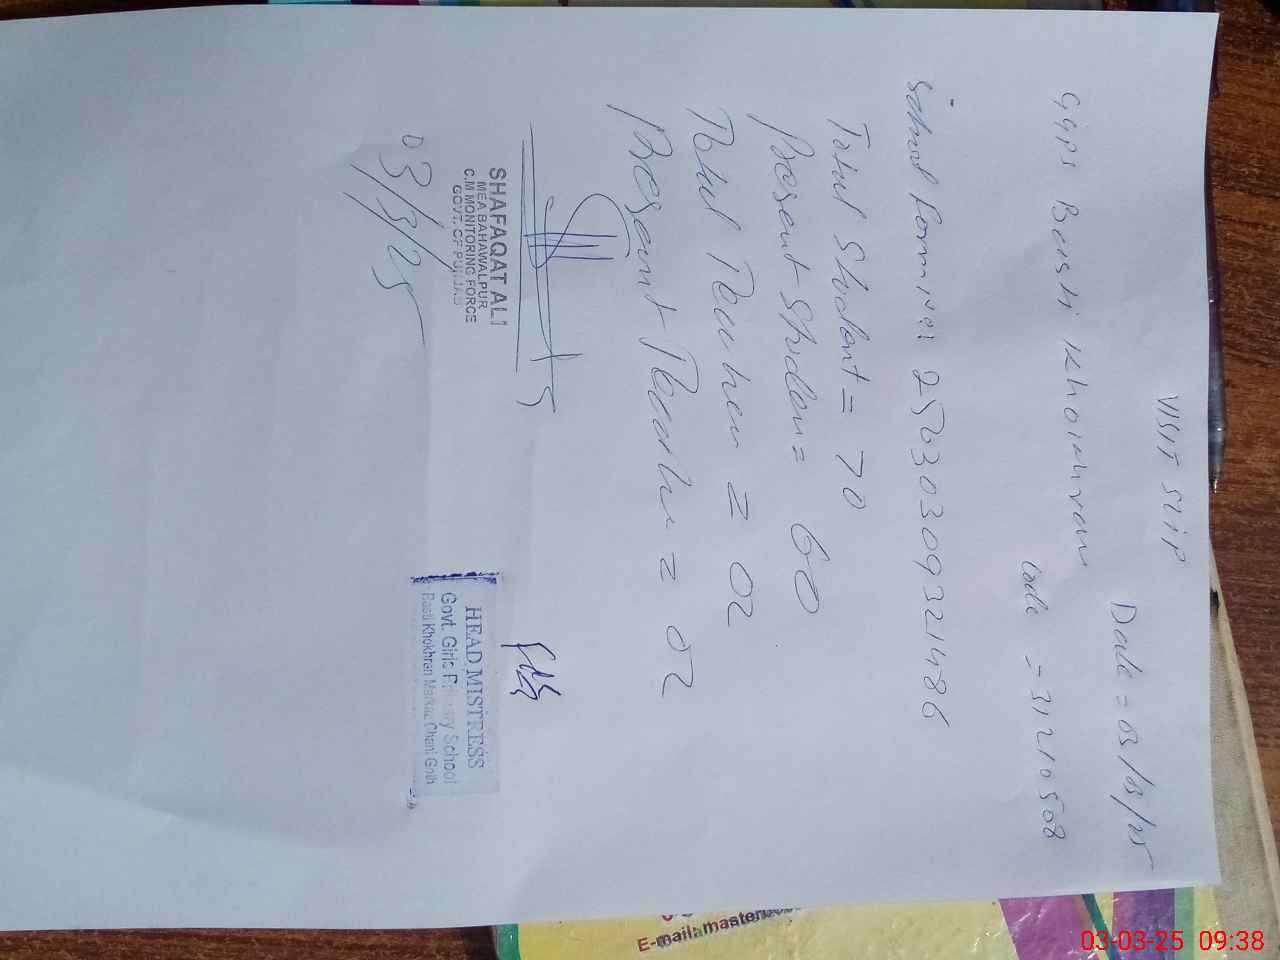 VISIT SLIP
Date = 03/03/25
GGPS Basti Khokhran
Code = 31210508
School Form No: 25030309321486
Total Student = 70
Present Student = 60
Total Teacher = 02
Present Teacher = 02
SHAFAQAT ALI
MEA BAHAWALPUR
C.M MONITORING FORCE
GOVT. OF PUNJAB
03/3/25
HEAD MISTRESS
Govt. Girls Primary School
Basti Khokhran Markaz Chani Goth
E-mail: master
03-03-25 09:38